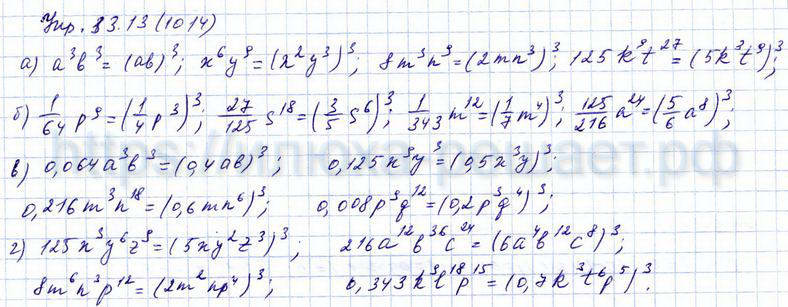 Упр. 33.13 (1014)
а) a³b³ = (ab)³; x⁶y⁹ = (x²y³)³; 8m³n⁹ = (2mn³)³; 125k⁹t²⁷ = (5k³t⁹)³;
б) 1/64 p⁹ = (1/4 p³)³; 27/125 s¹⁸ = (3/5 s⁶)³; 1/343 m¹² = (1/7 m⁴)³; 125/216 a²⁴ = (5/6 a⁸)³;
в) 0,064a³b³ = (0,4ab)³; 0,125x⁹y³ = (0,5x³y)³;
0,216m³n¹⁸ = (0,6mn⁶)³; 0,008p⁹q¹² = (0,2p³q⁴)³;
г) 125x³y⁶z⁹ = (5xy²z³)³; 216a¹²b³⁶c²⁴ = (6a⁴b¹²c⁸)³;
8m⁶n³p¹² = (2m²np⁴)³; 0,343k⁹l¹⁸p¹⁵ = (0,7k³t⁶p⁵)³.